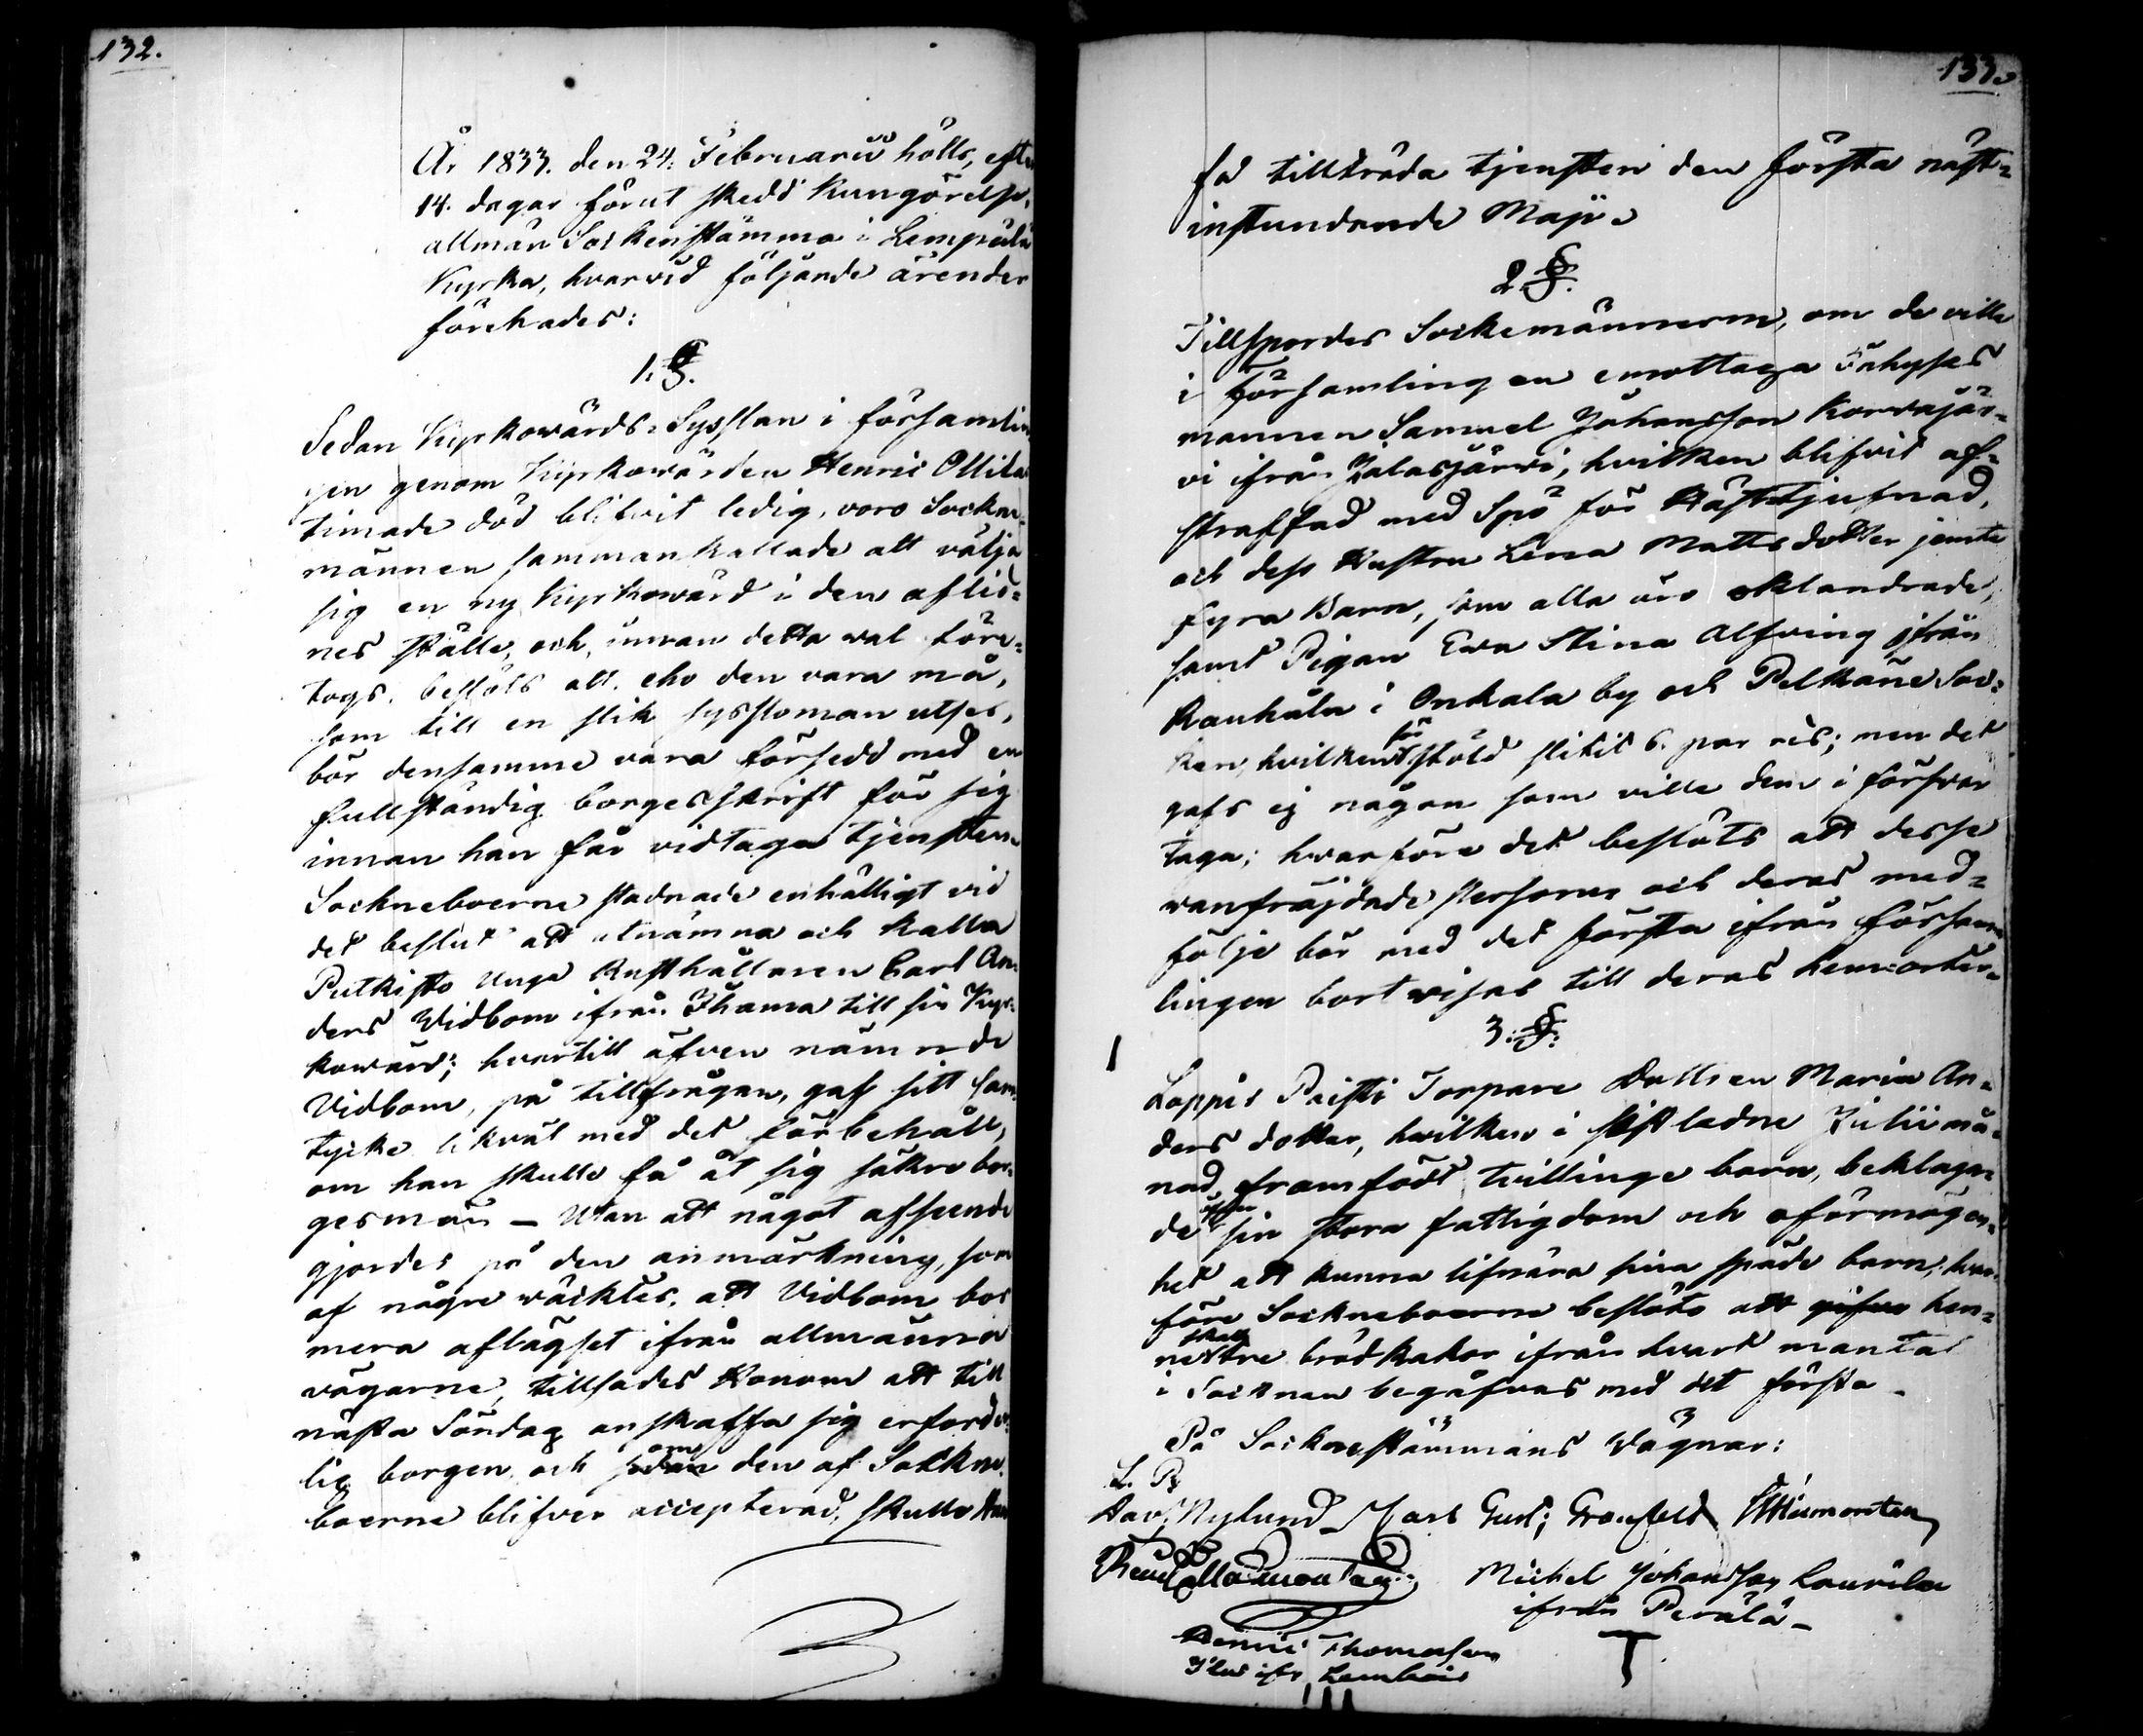 132.
År 1833. den 24. Februarii hölls, efter
14. dagar förut skedd Kungörelse,
allmän Sockenstämma i Lempäälä
Kyrka, hvarvid följande ärender
förehades:
1. §.
Sedan Kyrkowärds-Sysslan i församlin
gen genom Kyrkowärden Henric Ollilas
timade död blifvit ledig, voro Socken-
männen sammankallade att välja
sig en ny Kyrkowärd i den aflid-
nes ställe, och, innan detta wal före-
togs, beslöts att, eho den vara må,
som till en slik syssloman utses,
bör densamme vara försedd med en
fullständig borgesskrift för sig
innan han får vidtaga tjensten.
Sockneboerne stadnade enhälligt vid
det beslut att utnämna och kalla
Putkisto unga Rusthållaren Carl An-
ders Widbom ifrån Ihama till sin Kyr-
kowärd; hvartill äfven nämnde
Vidbom, på tillfrågan, gaf sitt sam-
tycke likväl med det förbehåll,
om han skulle få åt sig säkre bor-
gesmän – Utan att något afseende
gjordes på den anmärkning, som
af någre wäcktes, att Vidbom bor
mera aflägset ifrån allmänna
vägarne, tillsades Honom att till
nästa Söndag anskaffa sig erforder-
lig borgen, och om den af Sockne-
boerne blifver accepterad, skulle Han
133.
få tillträda tjensten den första näst-
instundande Maji.
2. §.
Tillspordes Sockemännerne, om de ville
i Församlingen emottaga Inhyses
mannen Samuel Johansson Korvajär-
vi ifrån Jalasjärvi, hvilken blifvit af-
straffad med Spö för Hästtjufnad,
och dess Hustru Lena Mattsdotter jemte
fyra Barn, som alla äro oklandrade,
samt Pigan Ewa Stina Alfving ifrån
Rauhala i Onkala by och Pelkäne Soc-
ken, hvilken för stöld slitit 6. par ris; men det
gafs ej någon som ville dem i försvar
taga; hvarföre det beslöts att desse
vanfräjdade Personer och deras med-
följe bör med det första ifrån försam-
lingen bortvisas till deras hemorter.
3. §.
Loppis Paisti Torpare Dottren Maria An-
ders dotter, hvilken i sistledne Julii må-
nad framfödt tvillinge barn, beklagan-
de öfver sin stora fattigdom och oförmögen-
het att kunna lifnära sina späda barn; hvar-
före Sockneboerne beslöto att gifva hen-
ne skall tre brödkakor ifrån hvart mantal
i Socknen begåfvas med det första.
På Sockenstämmans Vägnar:
Nylund Carl Gust;
Michel Johansson Laurila
ifrån Perälä
Henric Thomasson